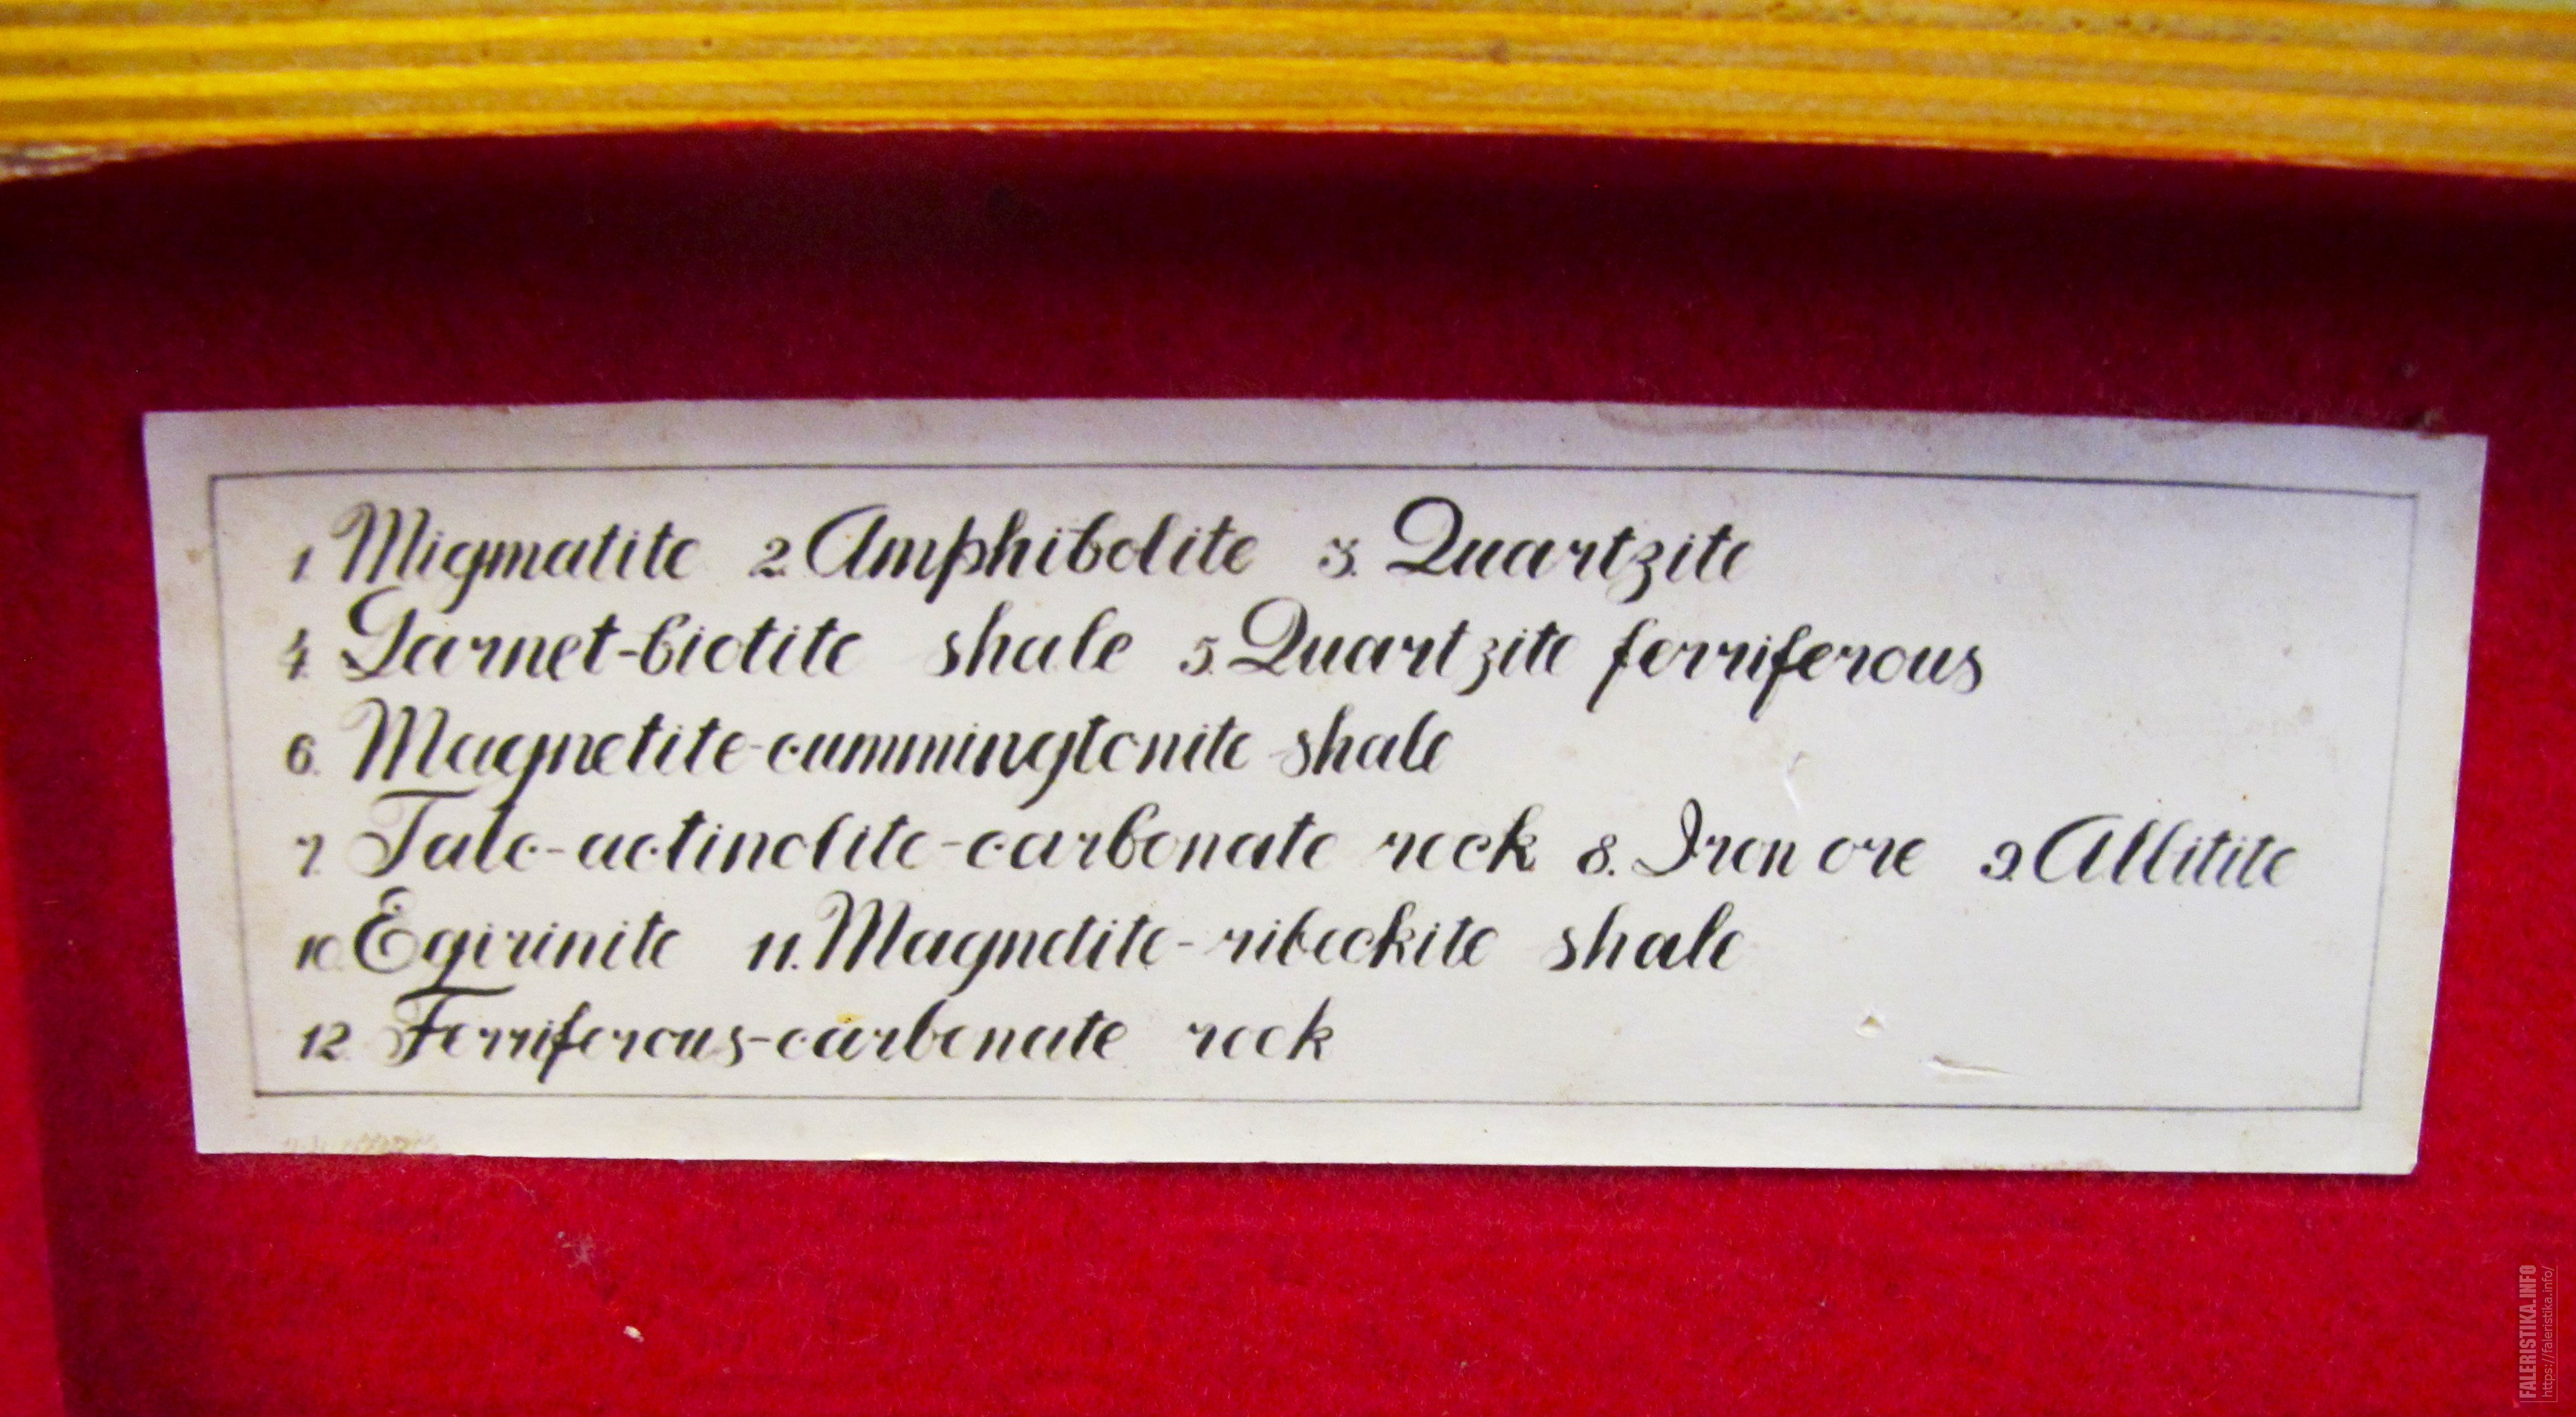 1 Migmatite 2. Amphibolite 3. Quartzite
4. Garnet-biotite shale 5. Quartzite ferriferous
6. Magnetite-cummingtonite shale
7. Talc-actinolite-carbonate rock 8. Iron ore 9. Albitite
10. Egirinite 11. Magnetite-ribeckite shale
12. Ferriferous-carbonate rock
FALERISTIKA.INFO
https://faleristika.info/